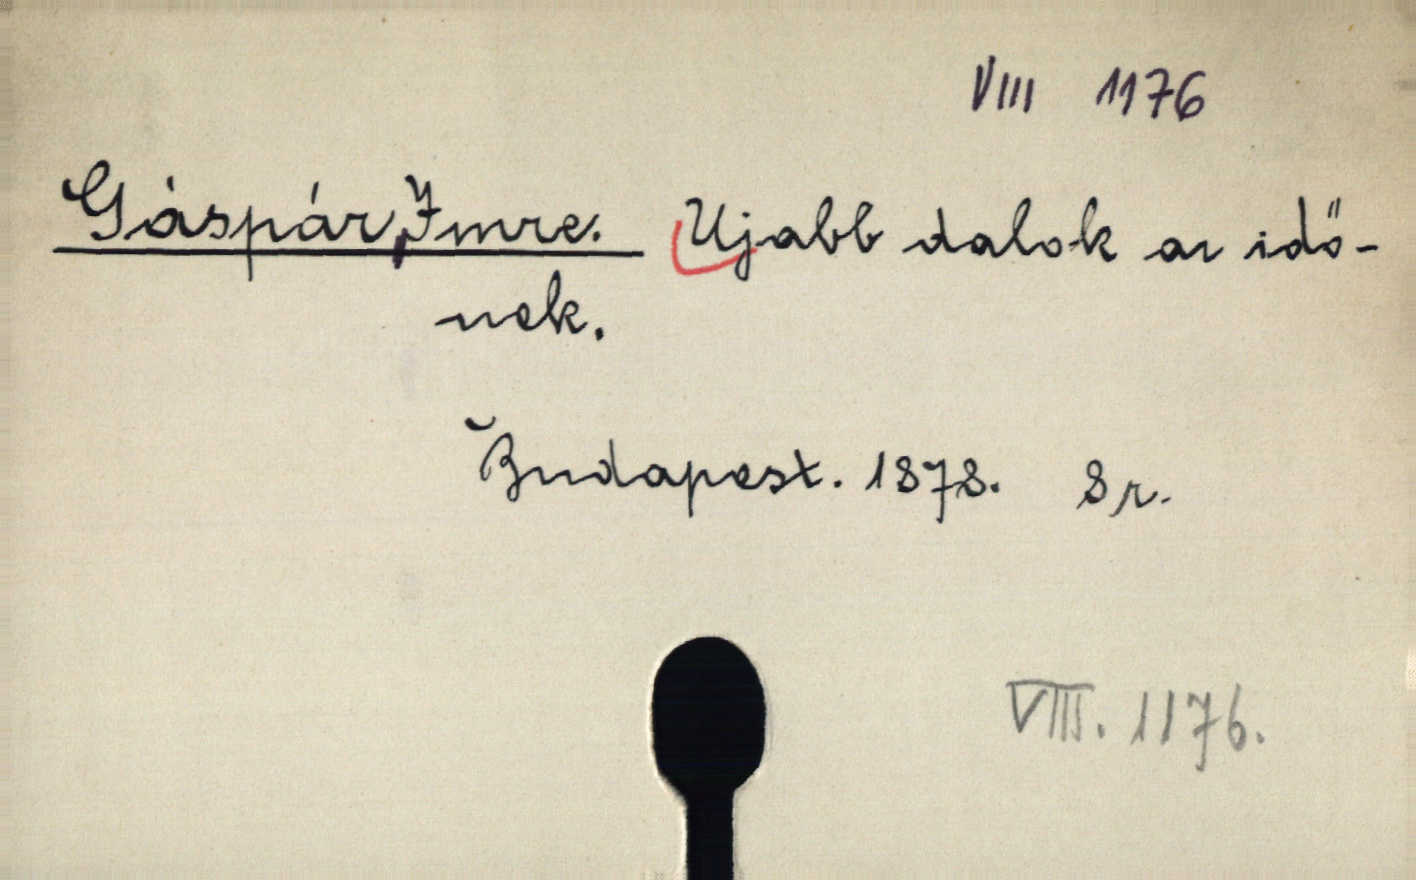 VIII 1176
Gáspár, Imre. Ujabb dalok az idő-
nek.
Budapest. 1878. 8r.
VIII. 1176.